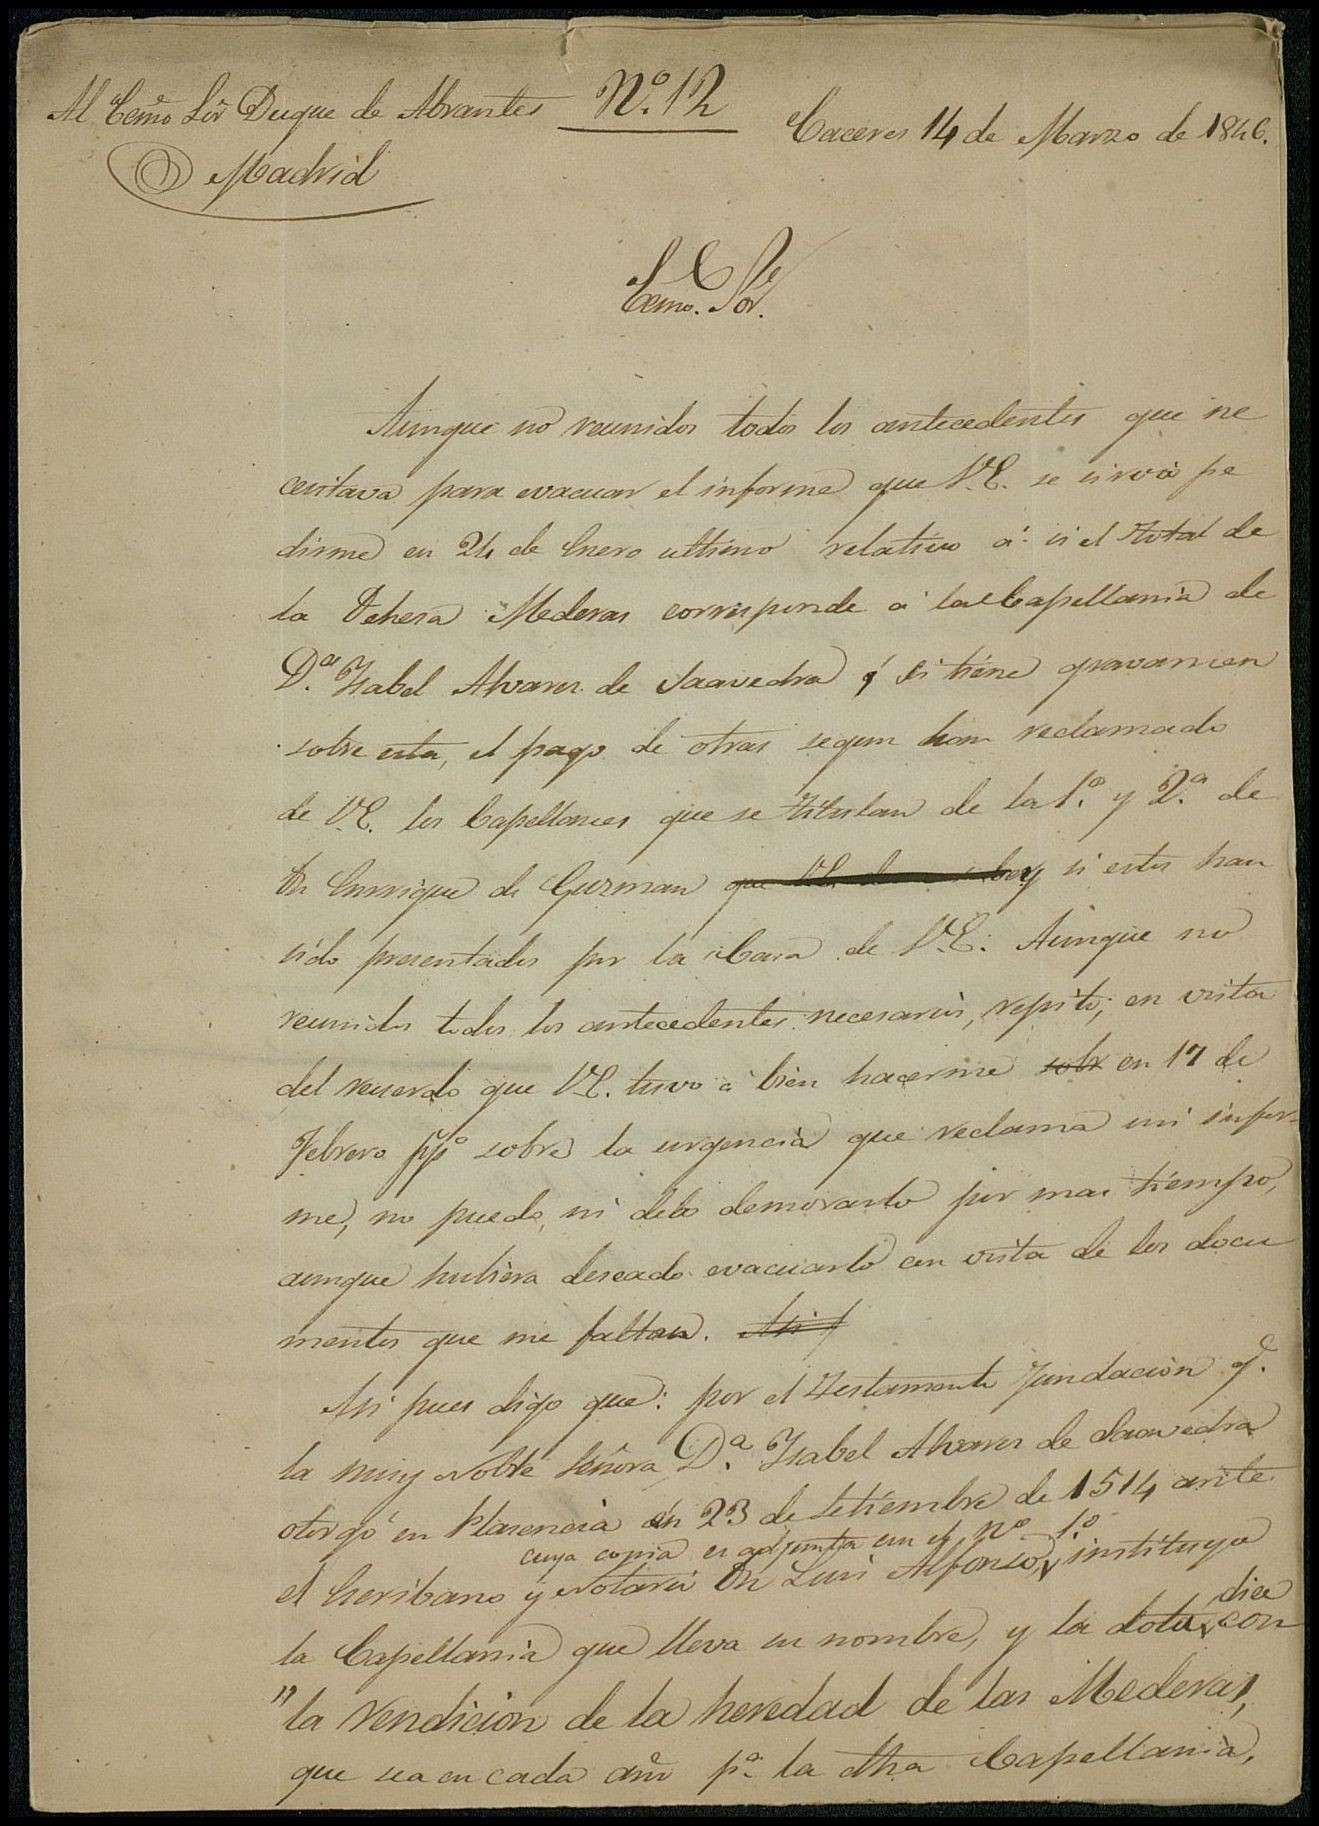 Al Ecmõ Sõr Duque de Abrantes
Nº. 12
Caceres 14 de Marzo de 1846.
Madrid
Ecmo. Sor.
Aunque no reunidos todos los antecedentes que ne
cesitava para evacuar el informe que V.E. se sirvió pe
dirme en 24 de Enero ultimo relativo á si el total de
la Dehesa Mederas corresponde á la Capellania de
D.ª Ysabel Alvarez de Saavedra y si tiene gravamen
sobre esta, el pago de otras segun han reclamado
de V.E. los Capellanes que se titulan de la 1.ª y 2.ª de
Dn Enrrique de Guzman que V.E. y si estos han
sido presentados por la Casa de V.E. Aunque no
reunidos todos los antecedentes necesarios, repito, en vista
del recuerdo que V.E. tuvo á bien hacerme sobr en 17 de
Febrero ppº sobre la urgencia que reclama mi infor-
me, no puedo, ni debo demorarlo por mas tiempo,
aunque hubiera deseado evacuarlo con vista de los docu
mentos que me faltan. Asi p
Asi pues digo que: por el Testamento fundacion q.e
la muy Noble Señora D.ª Ysabel Alvarez de Saavedra
otorgó en Plasencia en 23 de Setiembre de 1514 ante
cuya copia es adjunta con el Nº 1.º
el Escribano y Notario Dn Luis Alfonso, instituyo
dice
la Capellania que lleva su nombre, y la dota, con
"la Vendicion de la heredad de las Mederas,
que sea en cada año p.ª la dha Capellania,